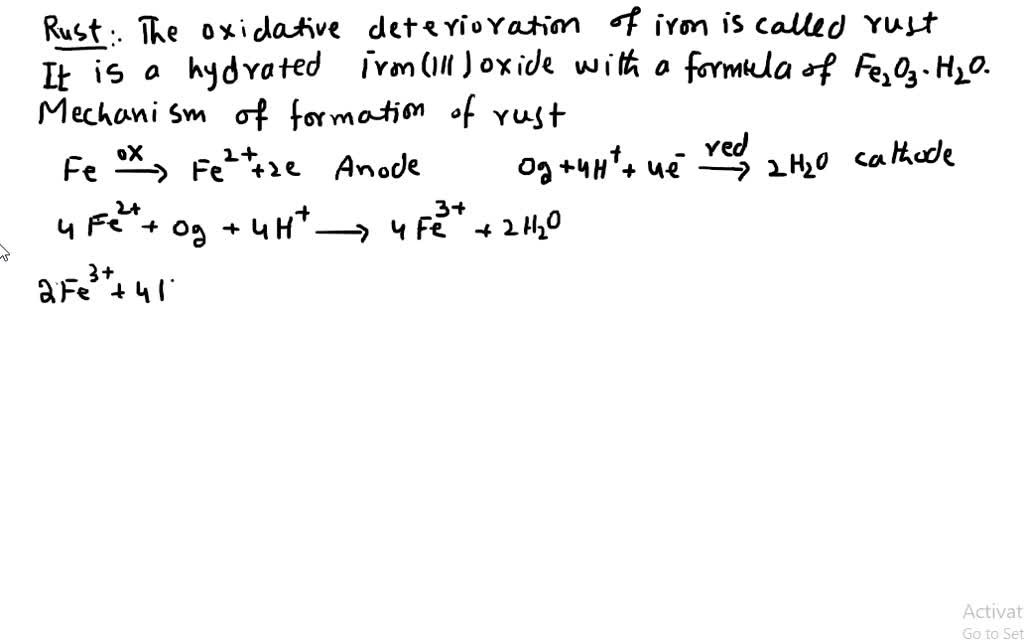 Rust:. The oxidative deterioration of iron is called rust
It is a hydrated iron(III) oxide with a formula of Fe₂O₃·H₂O.
Mechanism of formation of rust
Fe —ox→ Fe²⁺+2e Anode O₂+4H⁺+4e⁻ —red→ 2H₂O cathode
4Fe²⁺+O₂+4H⁺→4Fe³⁺+2H₂O
2Fe³⁺+4
Activat
Go to Set